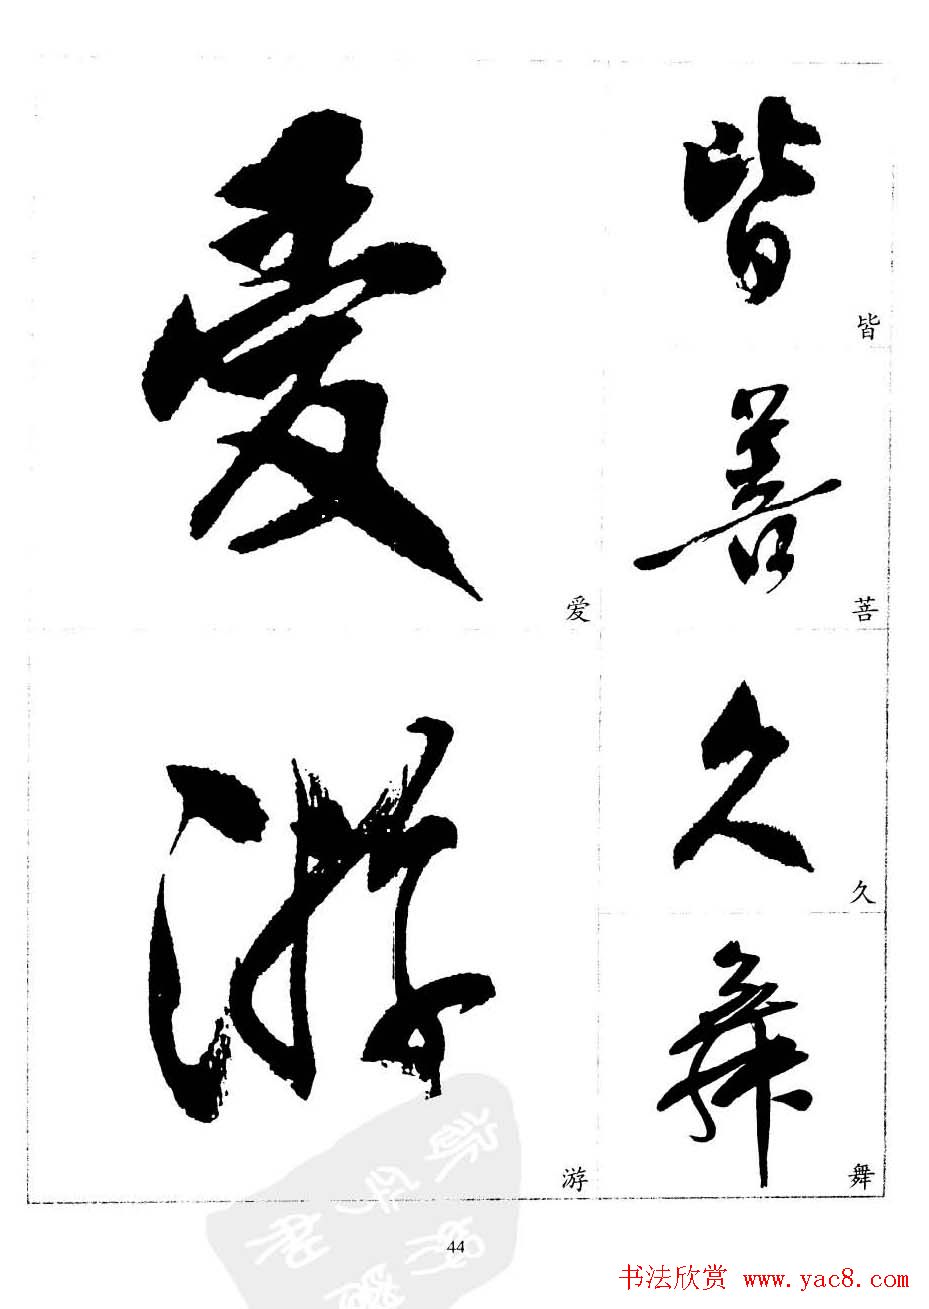 愛
爱
游
游
皆
皆
善
菩
久
久
舞
舞
44
书法欣赏 www.yac8.com